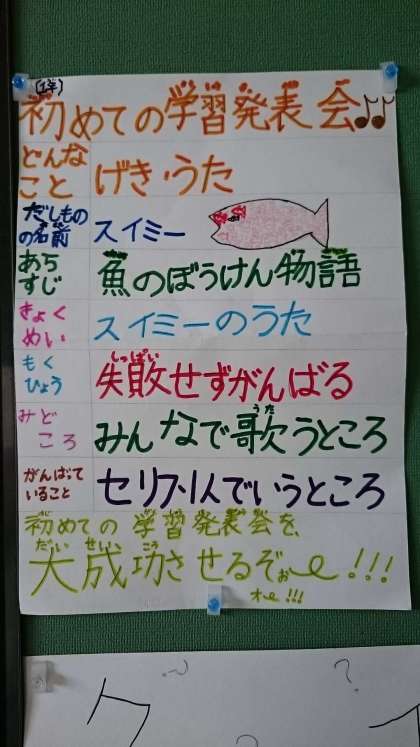 (1年)
初めての学習発表会♪♫
どんな
こと
げき・うた
だしもの
の名前
スイミー
あら
すじ
魚のぼうけん物語
きょく
めい
スイミーのうた
もく
ひょう
しっぱい
失敗せずがんばる
みど
ころ
うた
みんなで歌うところ
がんばって
いること
セリフ1人でいうところ
初めての学習発表会を、
だい せい こう
大成功させるぞぉー!!!
オー!!!
?
?
ク
イ